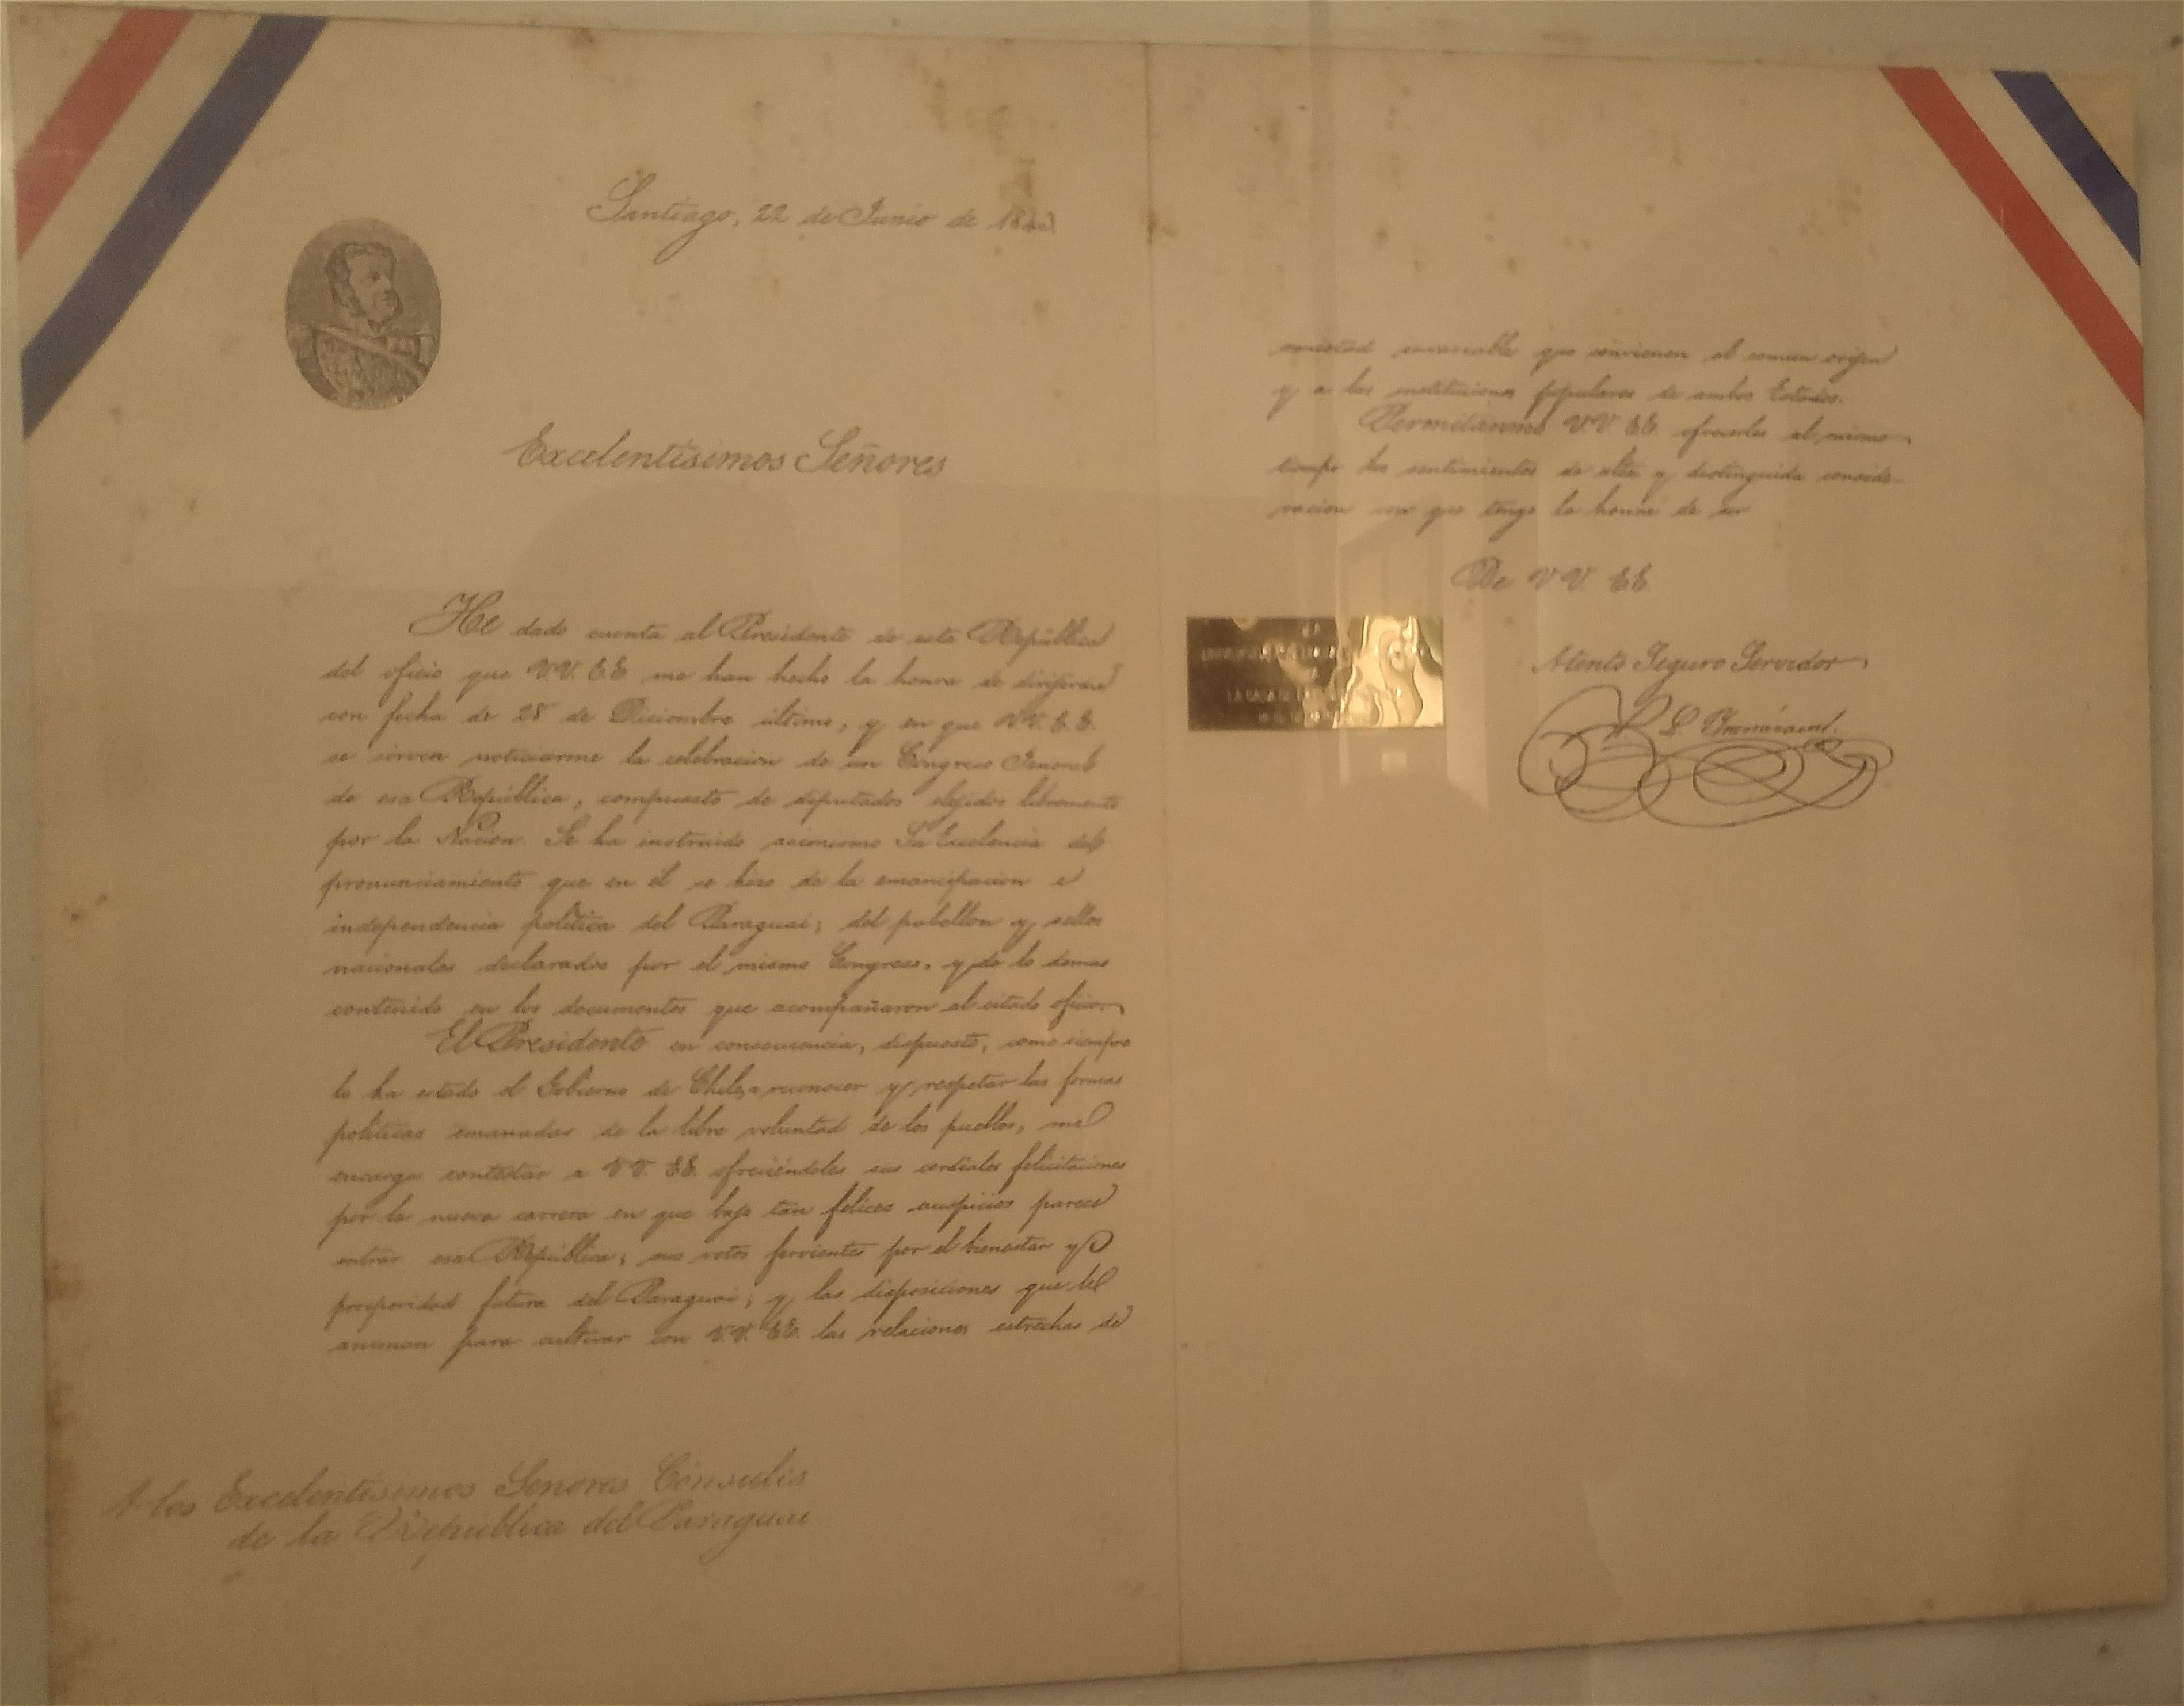 Santiago, 22 de Junio de 1843
Excelentísimos Señores
He dado cuenta al Presidente de esta República
del oficio que V.V. E.E. me han hecho la honra de dirijirme
con fecha de 28 de Diciembre último, y en que V.V. E.E.
se sirven noticiarme la celebracion de un Congreso Jeneral
de esa República, compuesto de diputados elejidos libremente
por la Nacion. Se ha instruido asimismo Su Excelencia del
pronunciamiento que en él se hizo de la emancipacion e
independencia política del Paraguai; del pabellon y sellos
nacionales declarados por el mismo Congreso, y de lo demas
contenido en los documentos que acompañaron al citado oficio.
El Presidente en consecuencia, dispuesto, como siempre
lo ha estado el Gobierno de Chile, a reconocer y respetar las formas
políticas emanadas de la libre voluntad de los pueblos, me
encarga contestar a V.V. EE. ofreciéndoles sus cordiales felicitaciones
por la nueva carrera en que bajo tan felices auspicios parece
entrar esa República; sus votos fervientes por el bienestar y
prosperidad futura del Paraguai; y las disposiciones que le
animan para cultivar con V.V. EE. las relaciones estrechas de
A los Excelentísimos Señores Cónsules
de la República del Paraguai
amistad invariable que convienen al comun oríjen
y a las instituciones populares de ambos Estados.
Permítanme V.V. EE. ofrecerles al mismo
tiempo los sentimientos de alta y distinguida conside-
racion con que tengo la honra de ser
De V.V. EE.
Atento Seguro Servidor
LA CASA DE LA